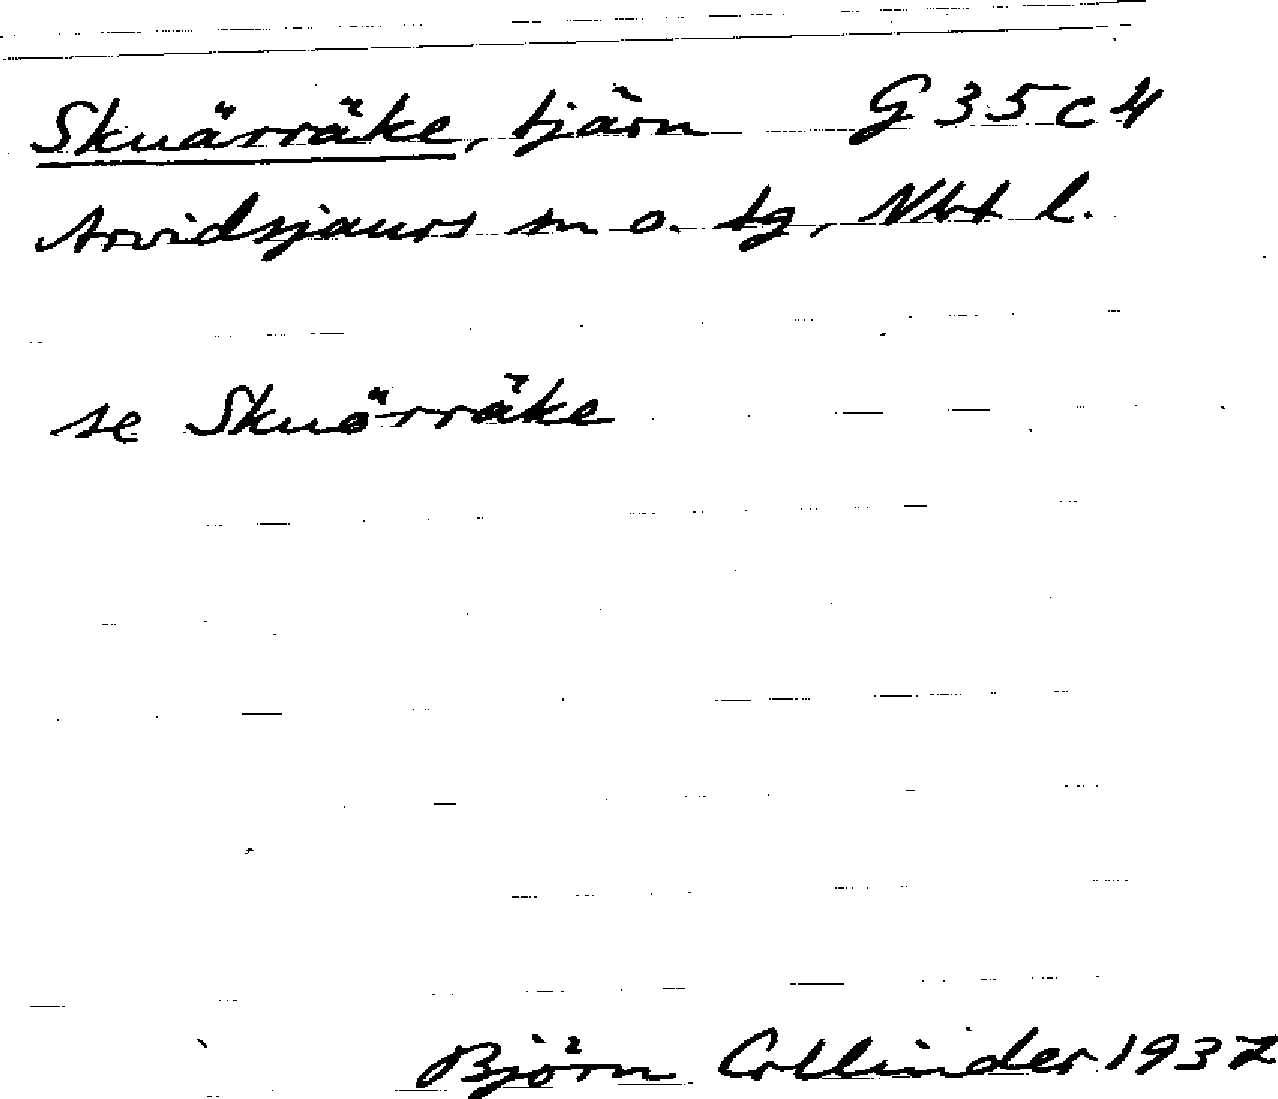 Skuärräke, tjärn G 35 c 4
Arvidsjaurs sn o. tg, Nbt l.
se Skuörräke
Björn Collinder 1937